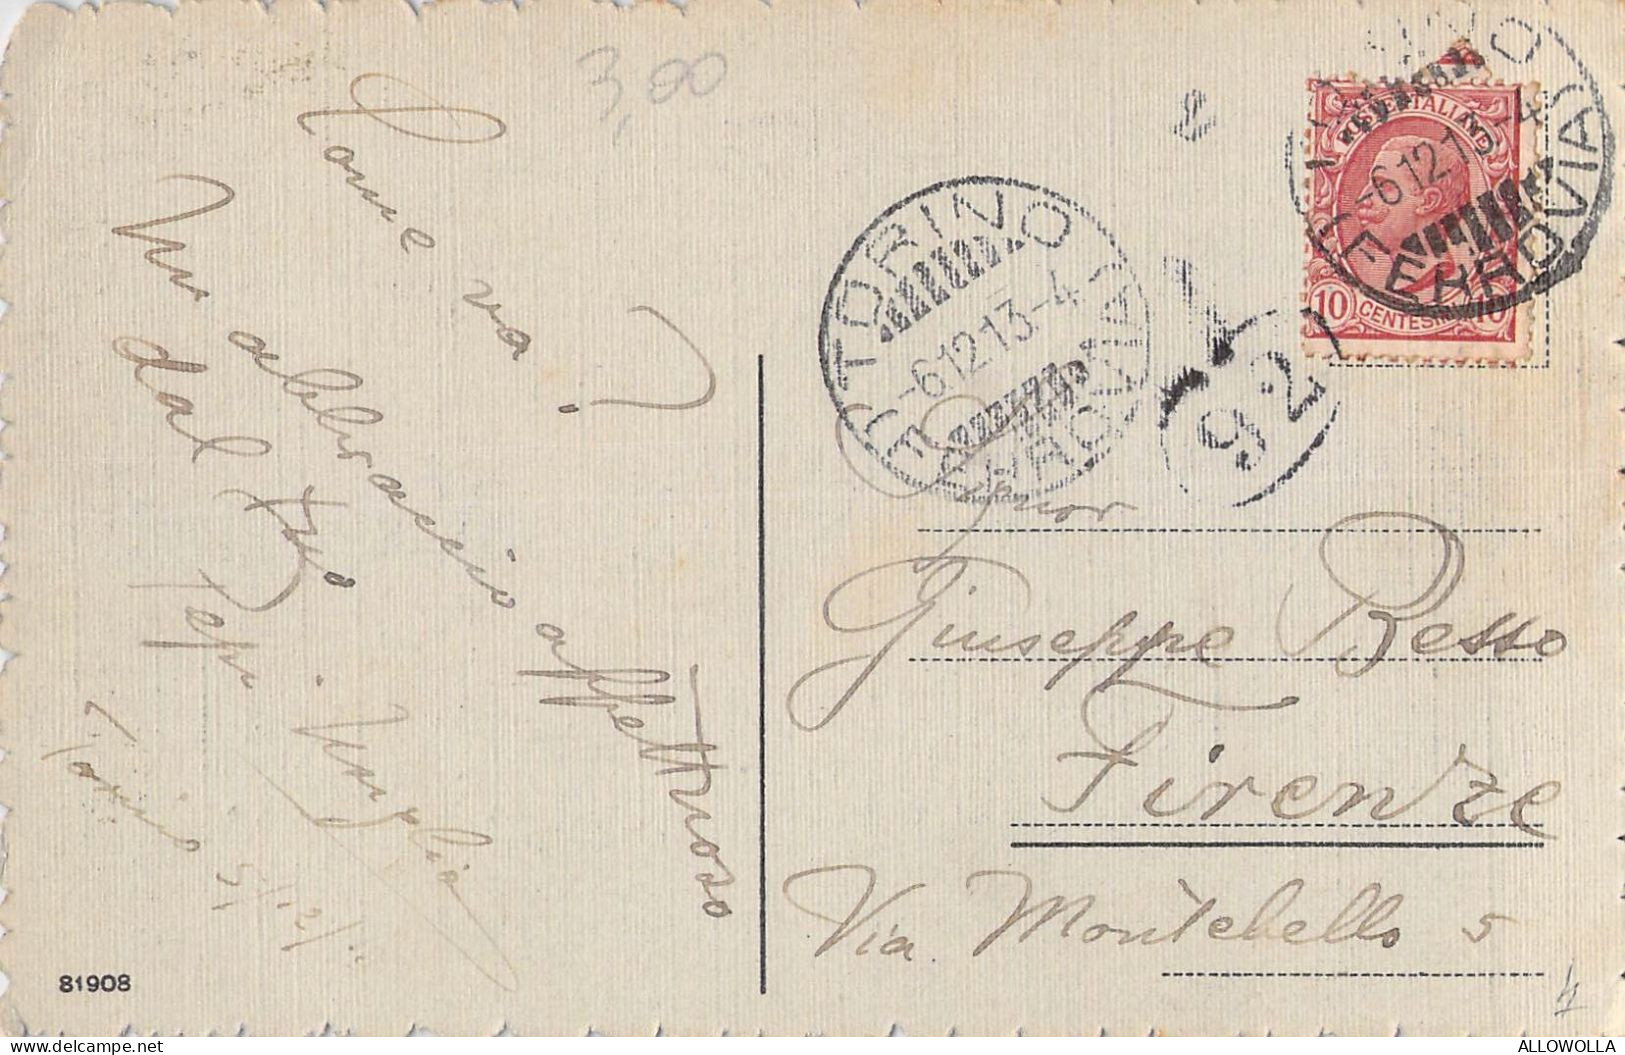 3,00
Come va?
Un abbraccio affettuoso
dal tuo
Pepi
Torino 5/12/
81908
TORINO
-6.12.13-4
FERROVIA
92
POSTE ITALIANE
-6.12.13-4
FERROVIA
10 CENTESIMI 10
Signor
Giuseppe Besso
Firenze
Via Montebello 5
4
delcampe.net
ALLOWOLLA